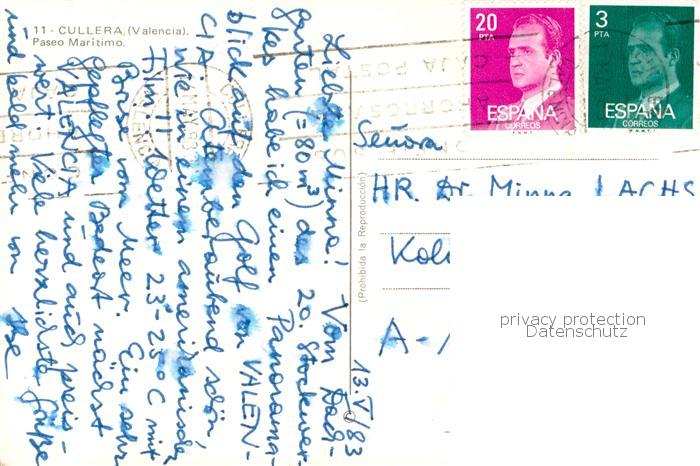 11 - CULLERA (Valencia).
Paseo Marítimo.
20
PTA
ESPAÑA
CORREOS
3
PTA
ESPAÑA
CORREOS
(Prohibida la Reproducción)
13.V/83
Liebste Minna! Vom Dach-
garten (=80m²) des 20. Stockwer-
kes habe ich einen Panorama-
blick auf den Golf von VALEN-
CIA. Atemberaubend schön,
wie in einem amerikanischen
Film!! Wetter 23-25°C mit
Brise vom Meer. Ein sehr
gepflegter Badeort nächst
VALENCIA und auch preis-
wert. Viele herzlichste Grüße
und
von
Señora
HR. Dr. Minna LACHS
A-
privacy protection
Datenschutz